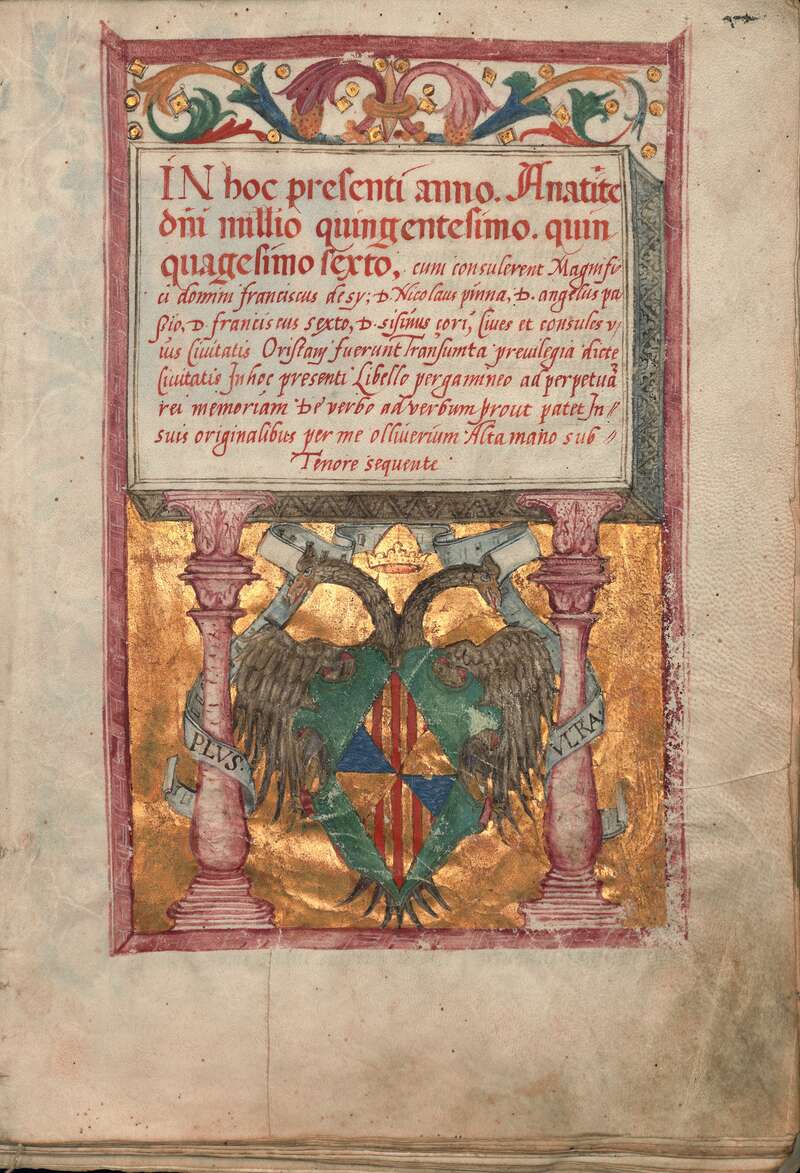 IN hoc presenti anno. Anatite
dñi millio quingentesimo. quin
quagesimo sexto, cum consulerent Magnifi
ci domini franciscus de sy; D. Nicolaus pinna, D. angelus pa
pio, D. franciscus sexto, D. sisinus cori, Cives et consules v
ius Civitatis Oristanj fuerunt Transumta previlegia dicte
Civitatis In hoc presenti Libello pergamineo ad perpetuã
rei memoriam De verbo ad verbum prout patet In
suis originalibus per me olliverium Alta mano sub
Tenore sequente
PLVS
VLRA